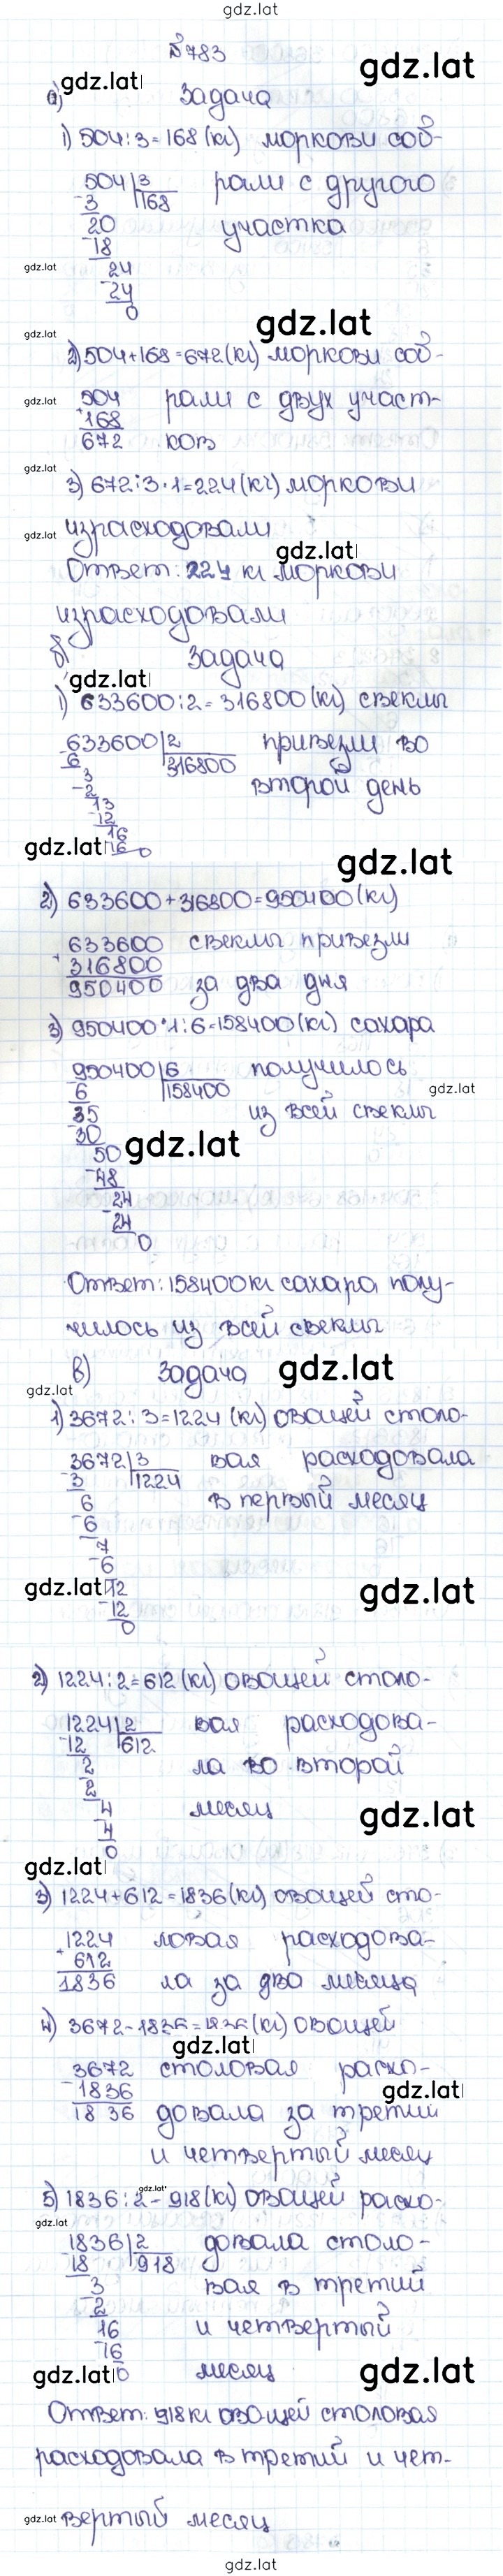 gdz.lat
№783
gdz.lat
gdz.lat
а) Задача
1) 504:3=168 (кг) моркови соб-
504 3 рали с другого
3 168
20 участка
18
gdz.lat 24
24
0
gdz.lat
gdz.lat
2) 504+168=672(кг) моркови соб-
504 рали с двух участ-
gdz.lat
+168
672 ков
gdz.lat
3) 672:3·1=224(кг) моркови
gdz.lat израсходовали
gdz.lat
Ответ: 224 кг моркови
израсходовали
б) Задача
gdz.lat
1) 633600:2=316800(кг) свеклы
633600 2 привезли во
6 316800
3 второй день
-2
13
-12
16
gdz.lat 16 0
gdz.lat
2) 633600+316800=950400(кг)
633600 свеклы привезли
+316800
950400 за два дня
3) 950400·1:6=158400(кг) сахара
950400 6 получилось
6 158400
gdz.lat
35 из всей свеклы
30
50 gdz.lat
-48
24
-24
0
Ответ: 158400 кг сахара полу-
чилось из всей свеклы
в) Задача gdz.lat
gdz.lat
1) 3672:3=1224 (кг) овощей столо-
3672 3 вая расходовала
3 1224
6 в первый месяц
-6
7
-6
gdz.lat 12
-12
0
gdz.lat
2) 1224:2=612(кг) овощей столо-
1224 2 вая расходова-
12 612
2 ла во второй
2
4 месяц
4
0
gdz.lat
gdz.lat
3) 1224+612=1836(кг) овощей сто-
1224 ловая расходова-
+ 612
1836 ла за два месяца
4) 3672-1836=1836(кг) овощей
gdz.lat
3672 столовая расхо-
-1836 gdz.lat
1836 довала за третий
и четвертый месяц
gdz.lat
5) 1836:2-918(кг) овощей расхо-
gdz.lat
1836 2 довала столо-
18 918
3 вая в третий
-2
16 и четвертый
-16
gdz.lat 0 месяц gdz.lat
Ответ: 918 кг овощей столовая
расходовала в третий и чет-
gdz.lat вертый месяц
gdz.lat